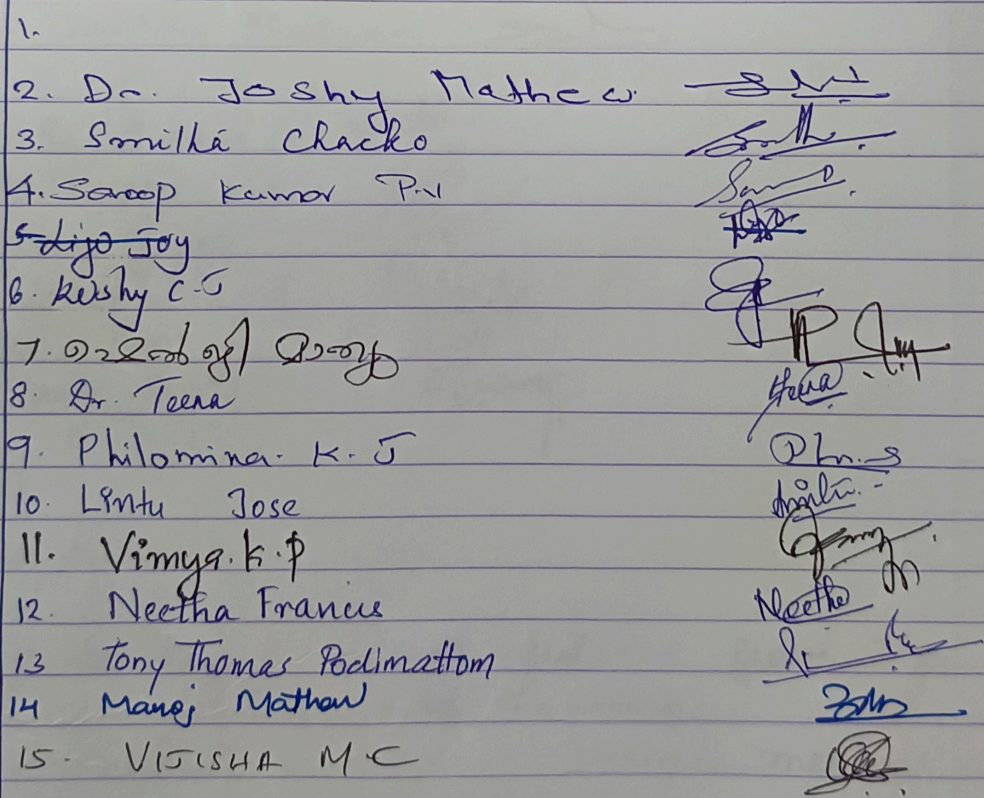 1.
2. Dr. Joshy Mathew
3. Smitha Chacko
4. Saroop Kumar P.V
5 Lijo Joy
6. Koshy C.J
7.
8. Dr. Teena
9. Philomina. K. J
10. Lintu Jose
11. Vimya. K. P
12. Neetha Francis
13 Tony Thomas Podimattom
14 Manoj Mathew
15. VIJISHA M C